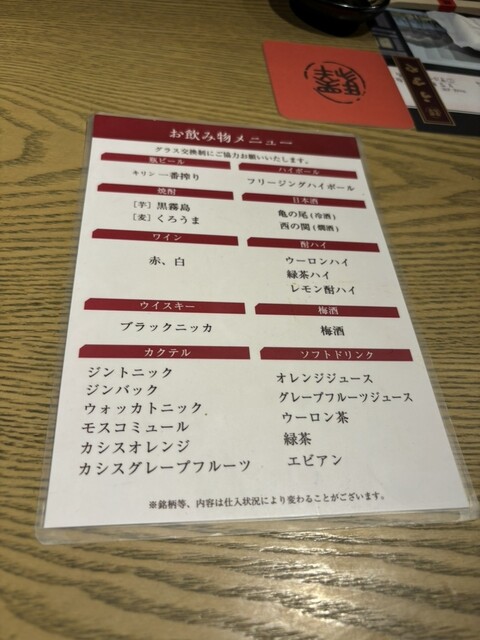 お飲み物メニュー
グラス交換制にご協力お願いいたします。
瓶ビール
キリン 一番搾り
ハイボール
フリージングハイボール
焼酎
［芋］黒霧島
［麦］くろうま
日本酒
亀の尾(冷酒)
西の関(燗酒)
ワイン
赤、白
酎ハイ
ウーロンハイ
緑茶ハイ
レモン酎ハイ
ウイスキー
ブラックニッカ
梅酒
梅酒
カクテル
ジントニック
ジンバック
ウォッカトニック
モスコミュール
カシスオレンジ
カシスグレープフルーツ
ソフトドリンク
オレンジジュース
グレープフルーツジュース
ウーロン茶
緑茶
エビアン
※銘柄等、内容は仕入状況により変わることがございます。